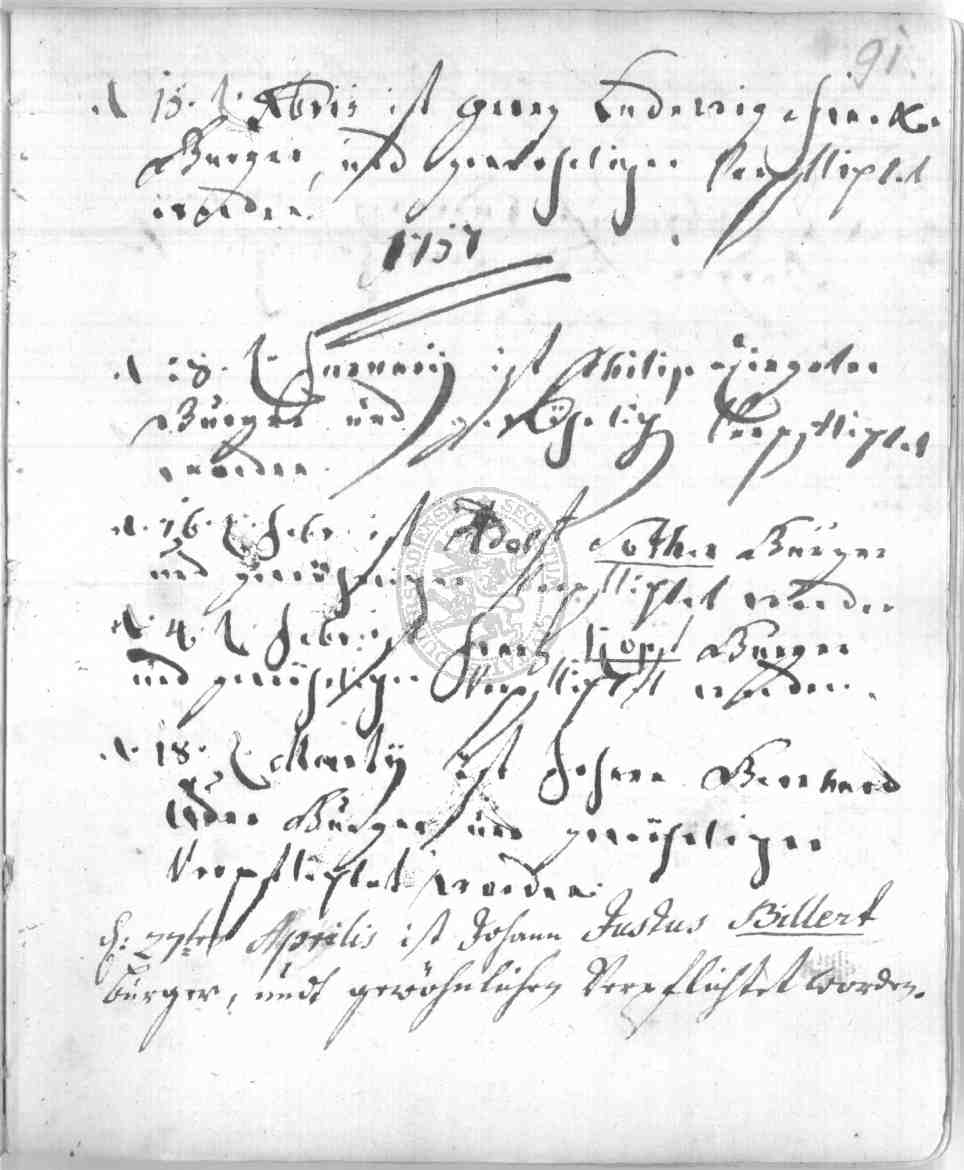 91.
d 15. t. Xbris ist Georg Ludewig
Burger, und gewehnlicher Verpflichtet
worden.
1757
d 28. t. Januarij ist Philip
Burger und gewöhnlich Verpflichtet
worden.
d. 16. t. Febr: ist Adolf Bürger
und gewöhnlicher Verpflichtet worden
d. 4. t. Febr: ist Frantz Kopf Burger
und gewöhnlicher Verpflichtett worden.
d. 18. t. Martij ist Johann Bernhard
Burger und gewöhnlicher
Verpflichtet worden.
d: 27ten Aprilis ist Johann Justus Billert
bürger, undt gewöhnlichen Verpflichtet worden.